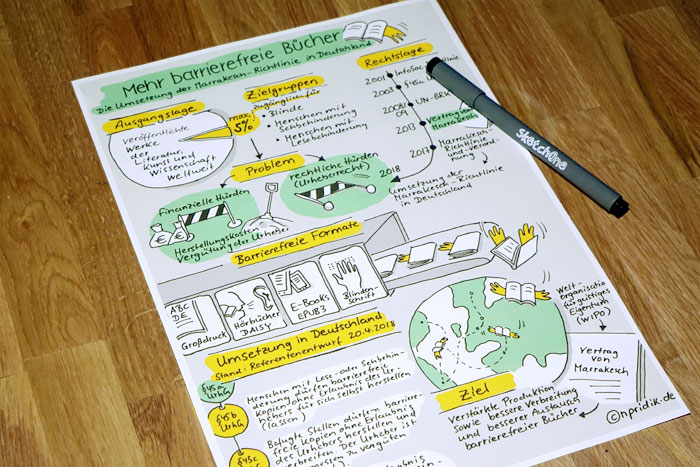 Mehr barrierefreie Bücher
Die Umsetzung der Marrakesch-Richtlinie in Deutschland
Ausgangslage
Veröffentlichte
Werke
der
Literatur,
Kunst und
Wissenschaft
weltweit
max.
5%
Zielgruppen
zugänglich für
• Blinde
• Menschen mit
Sehbehinderung
• Menschen mit
Lesebehinderung
Rechtslage
2001 InfoSoc
2003 §45a
2008/
09 UN-BRK
2013 Vertrag von
Marrakesch
2017 Marrakesch-
Richtlinie
und -verord-
nung
2018
Umsetzung der
Marrakesch-Richtlinie
in Deutschland
Problem
Finanzielle Hürden
€ €
Herstellungskosten
Vergütung der Urheber
rechtliche Hürden
(Urheberrecht)
Barrierefreie Formate
ABC
DE
Großdruck
Hörbücher
DAISY
E-Books
EPUB3
Blinden-
schrift
Umsetzung in Deutschland
Stand: Referentenentwurf 20.4.2018
§45a
UrhG
Menschen mit Lese- oder Sehbehin-
derung dürfen barrierefreie
Kopien ohne Erlaubnis des Urh
ebers für sich selbst herstellen
(lassen)
§45b
UrhG
Befugte Stellen dürfen barriere-
freie Kopien ohne Erlaubnis
des Urhebers herstellen und
verbreiten. Der Urheber ist
angemessen zu vergüten
§45c
Welt-
organisatio
für geistiges
Eigentum
(WIPO)
Vertrag
von
Marrakesch
Ziel
Verstärkte Produktion
sowie bessere Verbreitung
und besserer Austausch
barrierefreier Bücher
©npridik.de
Sketch One